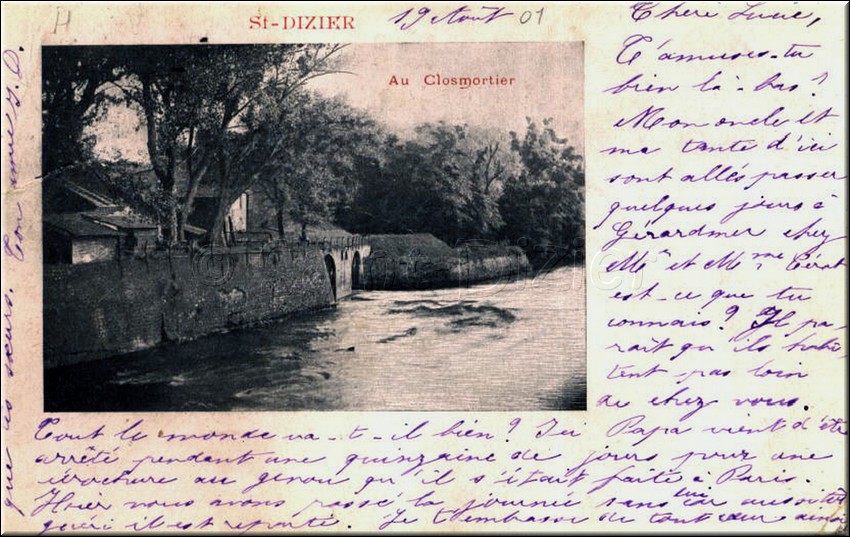 St-DIZIER
19 Août 01
Au Closmortier
Chère Lucie,
T'amuses-tu
bien là-bas?
Mon oncle et
ma tante d'ici
sont allés passer
quelques jours à
Gérardmer chez
Mr et Mme
est-ce que tu
connais? Il pa-
raît qu'ils habi-
tent pas loin
de chez vous.
Tout le monde va-t-il bien? Ici Papa vient d'être
arrêté pendant une quinzaine de jours pour une
écorchure au genou qu'il s'était faite à Paris.
Hier nous avons passé la journée sans lui car aussitôt
guéri il est reparti. Je t'embrasse de tout cœur ainsi
que tes sœurs. Ton amie